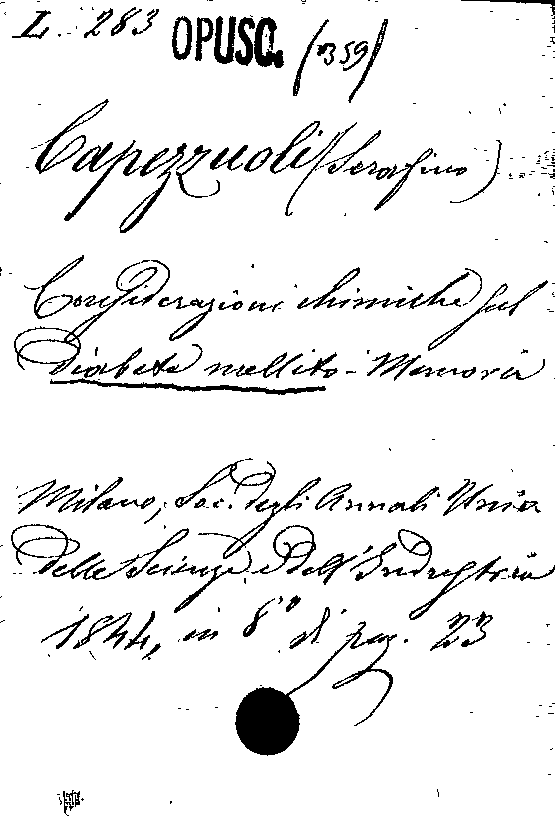 L. 283 OPUSC. (1359)
Capezzuoli (Serafino)
Considerazioni chimiche sul
diabete mellito - Memoria
Milano, Soc. degli Annali Univ.
delle Scienze e dell'Industria
1844, in 8° di pag. 23